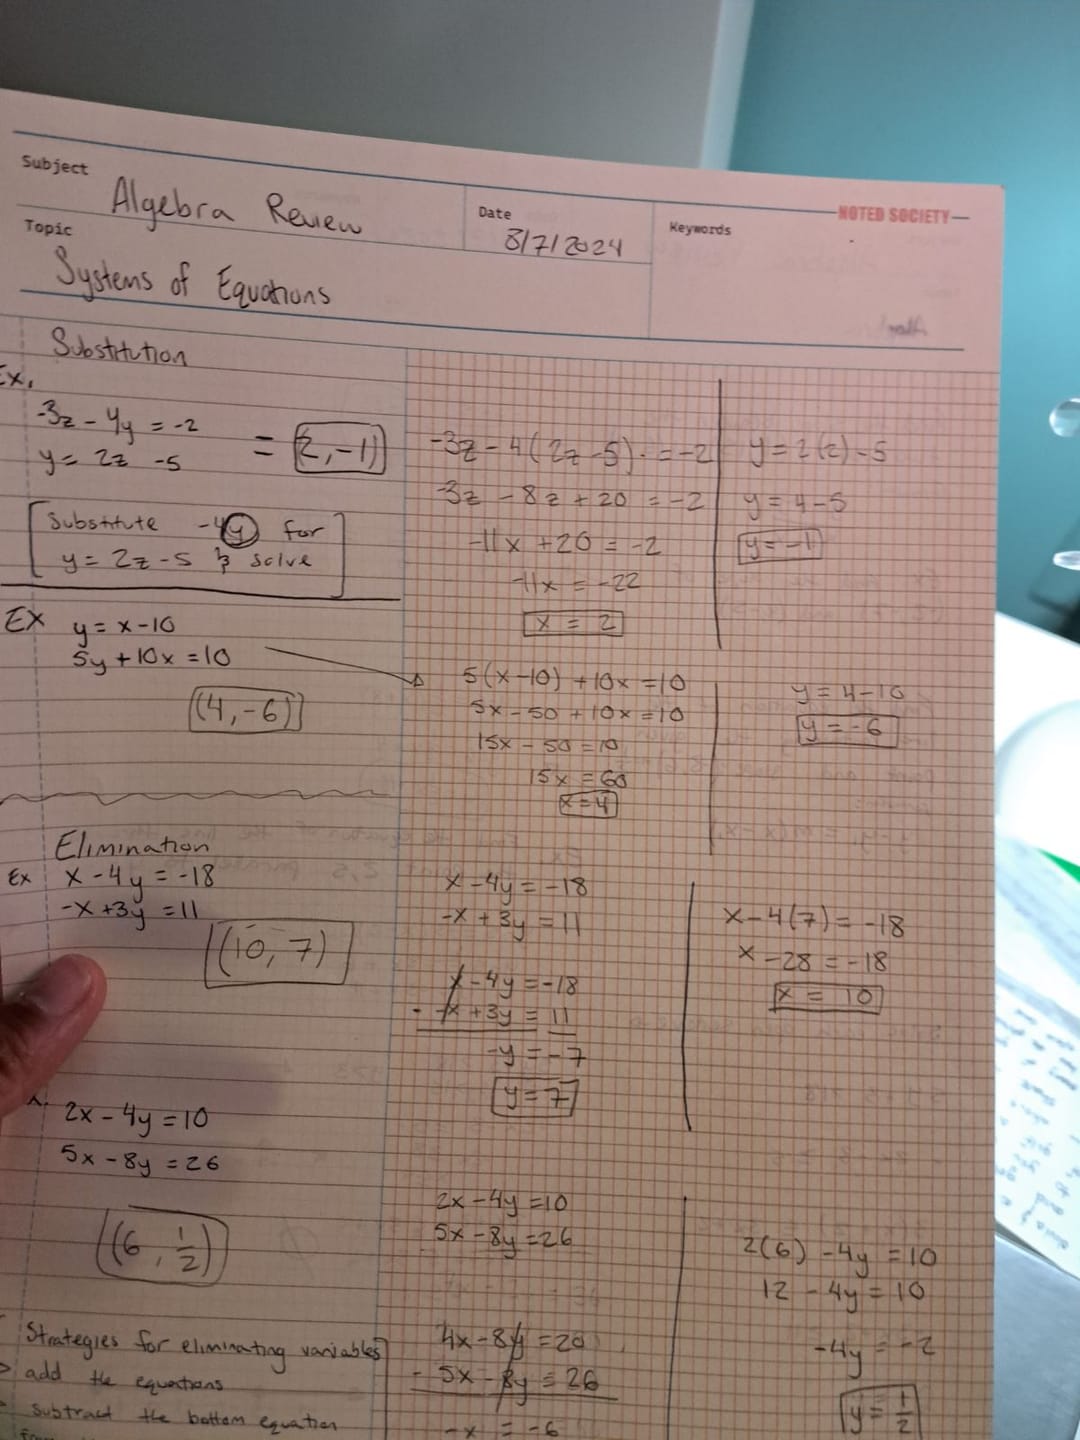 Subject
Algebra Review
Date
8/7/2024
Keywords
NOTED SOCIETY
Topic
Systems of Equations
Substitution
Ex.
-3z - 4y = -2
y = 2z - 5
= (2, -1)
[Substitute -4y for
y = 2z - 5 & solve]
-3z - 4(2z - 5) = -2
-3z - 8z + 20 = -2
-11x + 20 = -2
-11x = -22
x = 2
y = 2(2) - 5
y = 4 - 5
y = -1
EX
y = x - 10
5y + 10x = 10
(4, -6)
5(x - 10) + 10x = 10
5x - 50 + 10x = 10
15x - 50 = 10
15x = 60
x = 4
y = 4 - 10
y = -6
Elimination
Ex
x - 4y = -18
-x + 3y = 11
(10, 7)
x - 4y = -18
-x + 3y = 11
x - 4y = -18
- -x + 3y = 11
-y = -7
y = 7
x - 4(7) = -18
x - 28 = -18
x = 10
2x - 4y = 10
5x - 8y = 26
(6, 1/2)
2x - 4y = 10
5x - 8y = 26
4x - 8y = 20
- 5x - 8y = 26
-x = -6
2(6) - 4y = 10
12 - 4y = 10
-4y = -2
y = 1/2
Strategies for eliminating variables
> add the equations
subtract the bottom equation